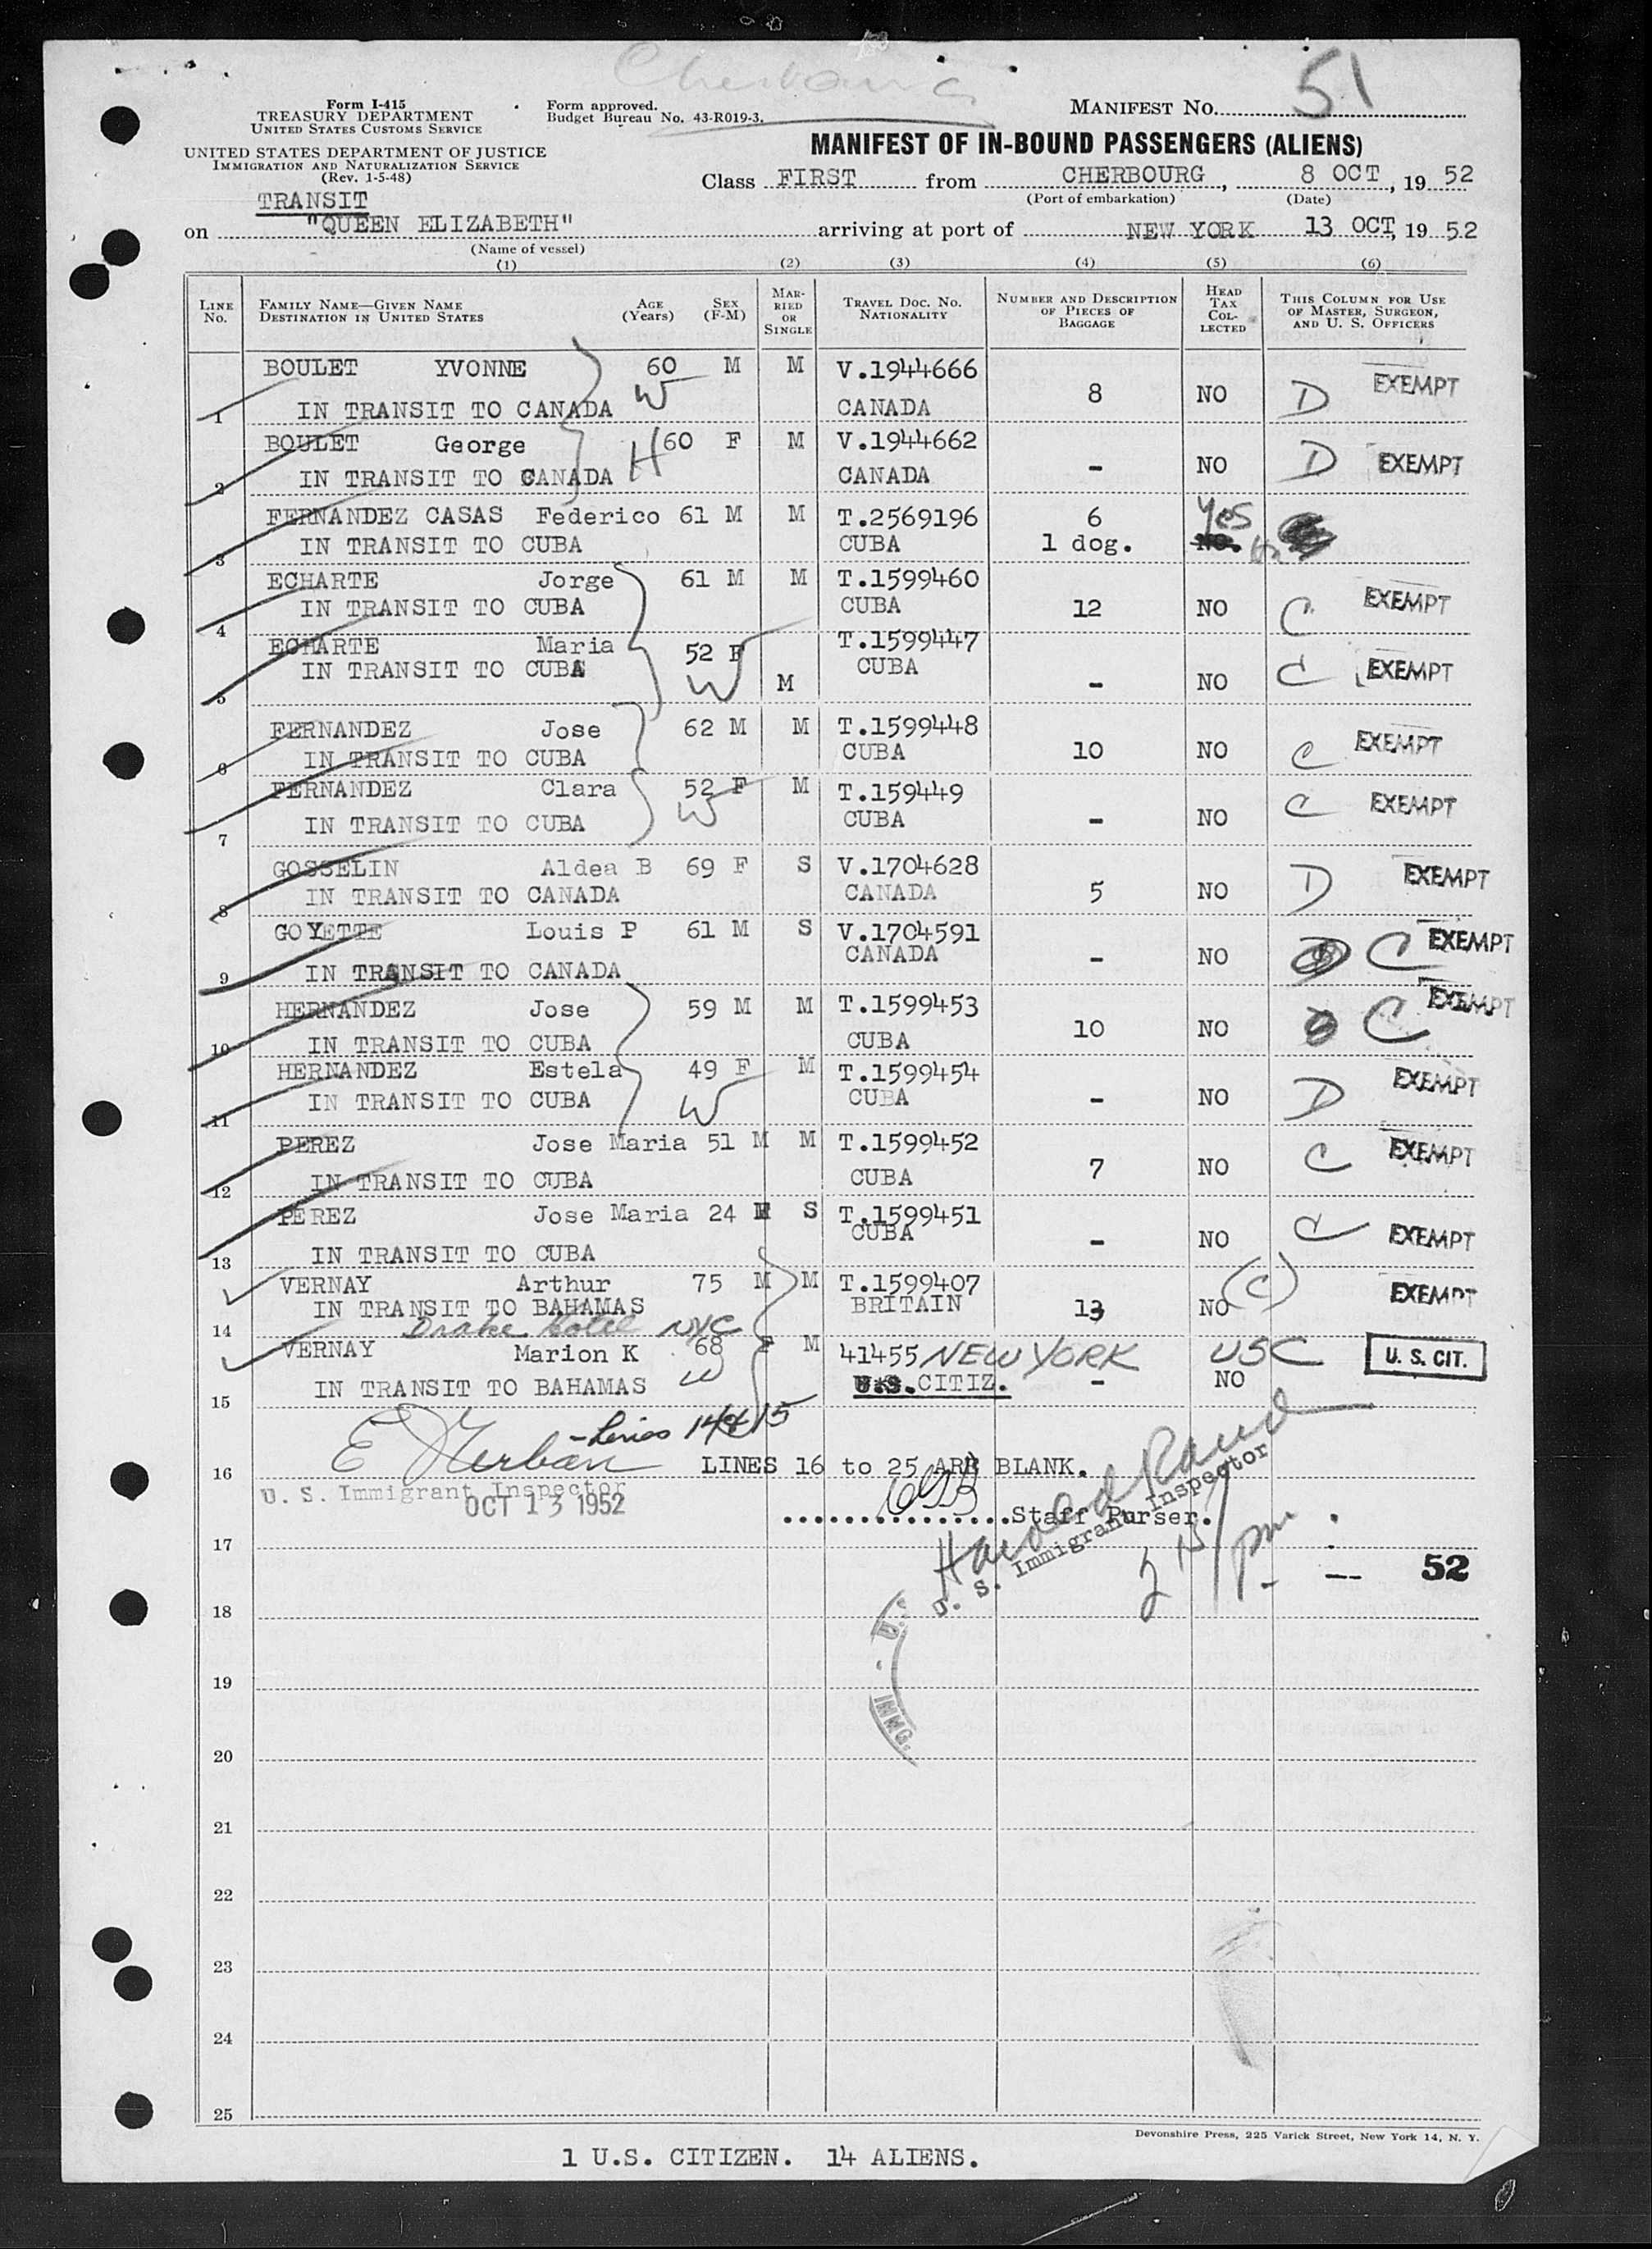 Cherbourg
Form I-415
TREASURY DEPARTMENT
UNITED STATES CUSTOMS SERVICE
UNITED STATES DEPARTMENT OF JUSTICE
IMMIGRATION AND NATURALIZATION SERVICE
(Rev. 1-5-48)
Form approved.
Budget Bureau No. 43-R019-3.
MANIFEST NO. 51
MANIFEST OF IN-BOUND PASSENGERS (ALIENS)
Class FIRST from CHERBOURG, 8 OCT, 1952
(Port of embarkation) (Date)
TRANSIT
on "QUEEN ELIZABETH" arriving at port of NEW YORK 13 OCT, 1952
(Name of vessel)
(1) (2) (3) (4) (5) (6)
LINE No. FAMILY NAME—GIVEN NAME DESTINATION IN UNITED STATES AGE (Years) SEX (F-M) MARRIED OR SINGLE TRAVEL DOC. NO. NATIONALITY NUMBER AND DESCRIPTION OF PIECES OF BAGGAGE HEAD TAX COLLECTED THIS COLUMN FOR USE OF MASTER, SURGEON, AND U. S. OFFICERS
BOULET YVONNE 60 M M V.1944666
1 IN TRANSIT TO CANADA W CANADA 8 NO D EXEMPT
BOULET George H 60 F M V.1944662
2 IN TRANSIT TO CANADA CANADA - NO D EXEMPT
FERNANDEZ CASAS Federico 61 M M T.2569196 6 Yes
3 IN TRANSIT TO CUBA CUBA 1 dog. NO.
ECHARTE Jorge 61 M M T.1599460
4 IN TRANSIT TO CUBA CUBA 12 NO C EXEMPT
ECHARTE Maria 52 F T.1599447
5 IN TRANSIT TO CUBA W M CUBA - NO C EXEMPT
FERNANDEZ Jose 62 M M T.1599448
6 IN TRANSIT TO CUBA CUBA 10 NO C EXEMPT
FERNANDEZ Clara 52 F M T.159449
7 IN TRANSIT TO CUBA W CUBA - NO C EXEMPT
GOSSELIN Aldea B 69 F S V.1704628
8 IN TRANSIT TO CANADA CANADA 5 NO D EXEMPT
GOYETTE Louis P 61 M S V.1704591
9 IN TRANSIT TO CANADA CANADA - NO C EXEMPT
HERNANDEZ Jose 59 M M T.1599453
10 IN TRANSIT TO CUBA CUBA 10 NO C EXEMPT
HERNANDEZ Estela 49 F M T.1599454
11 IN TRANSIT TO CUBA W CUBA - NO D EXEMPT
PEREZ Jose Maria 51 M M T.1599452
12 IN TRANSIT TO CUBA CUBA 7 NO C EXEMPT
PEREZ Jose Maria 24 M S T.1599451
13 IN TRANSIT TO CUBA CUBA - NO C EXEMPT
VERNAY Arthur 75 M M T.1599407
IN TRANSIT TO BAHAMAS BRITAIN 13 NO (C) EXEMPT
14 Drake Hotel NYC
VERNAY Marion K 68 F M 41455 NEW YORK USC U. S. CIT.
15 IN TRANSIT TO BAHAMAS W U.S. CITIZ. - NO
- lines 14 & 15
16 LINES 16 to 25 ARE BLANK.
U. S. Immigrant Inspector
OCT 13 1952
...............Staff Purser.
Harold Rand
U. S. Immigrant Inspector
17
52
18
U.
IMMG.
19
20
21
22
23
24
25
Devonshire Press, 225 Varick Street, New York 14, N. Y.
1 U.S. CITIZEN. 14 ALIENS.